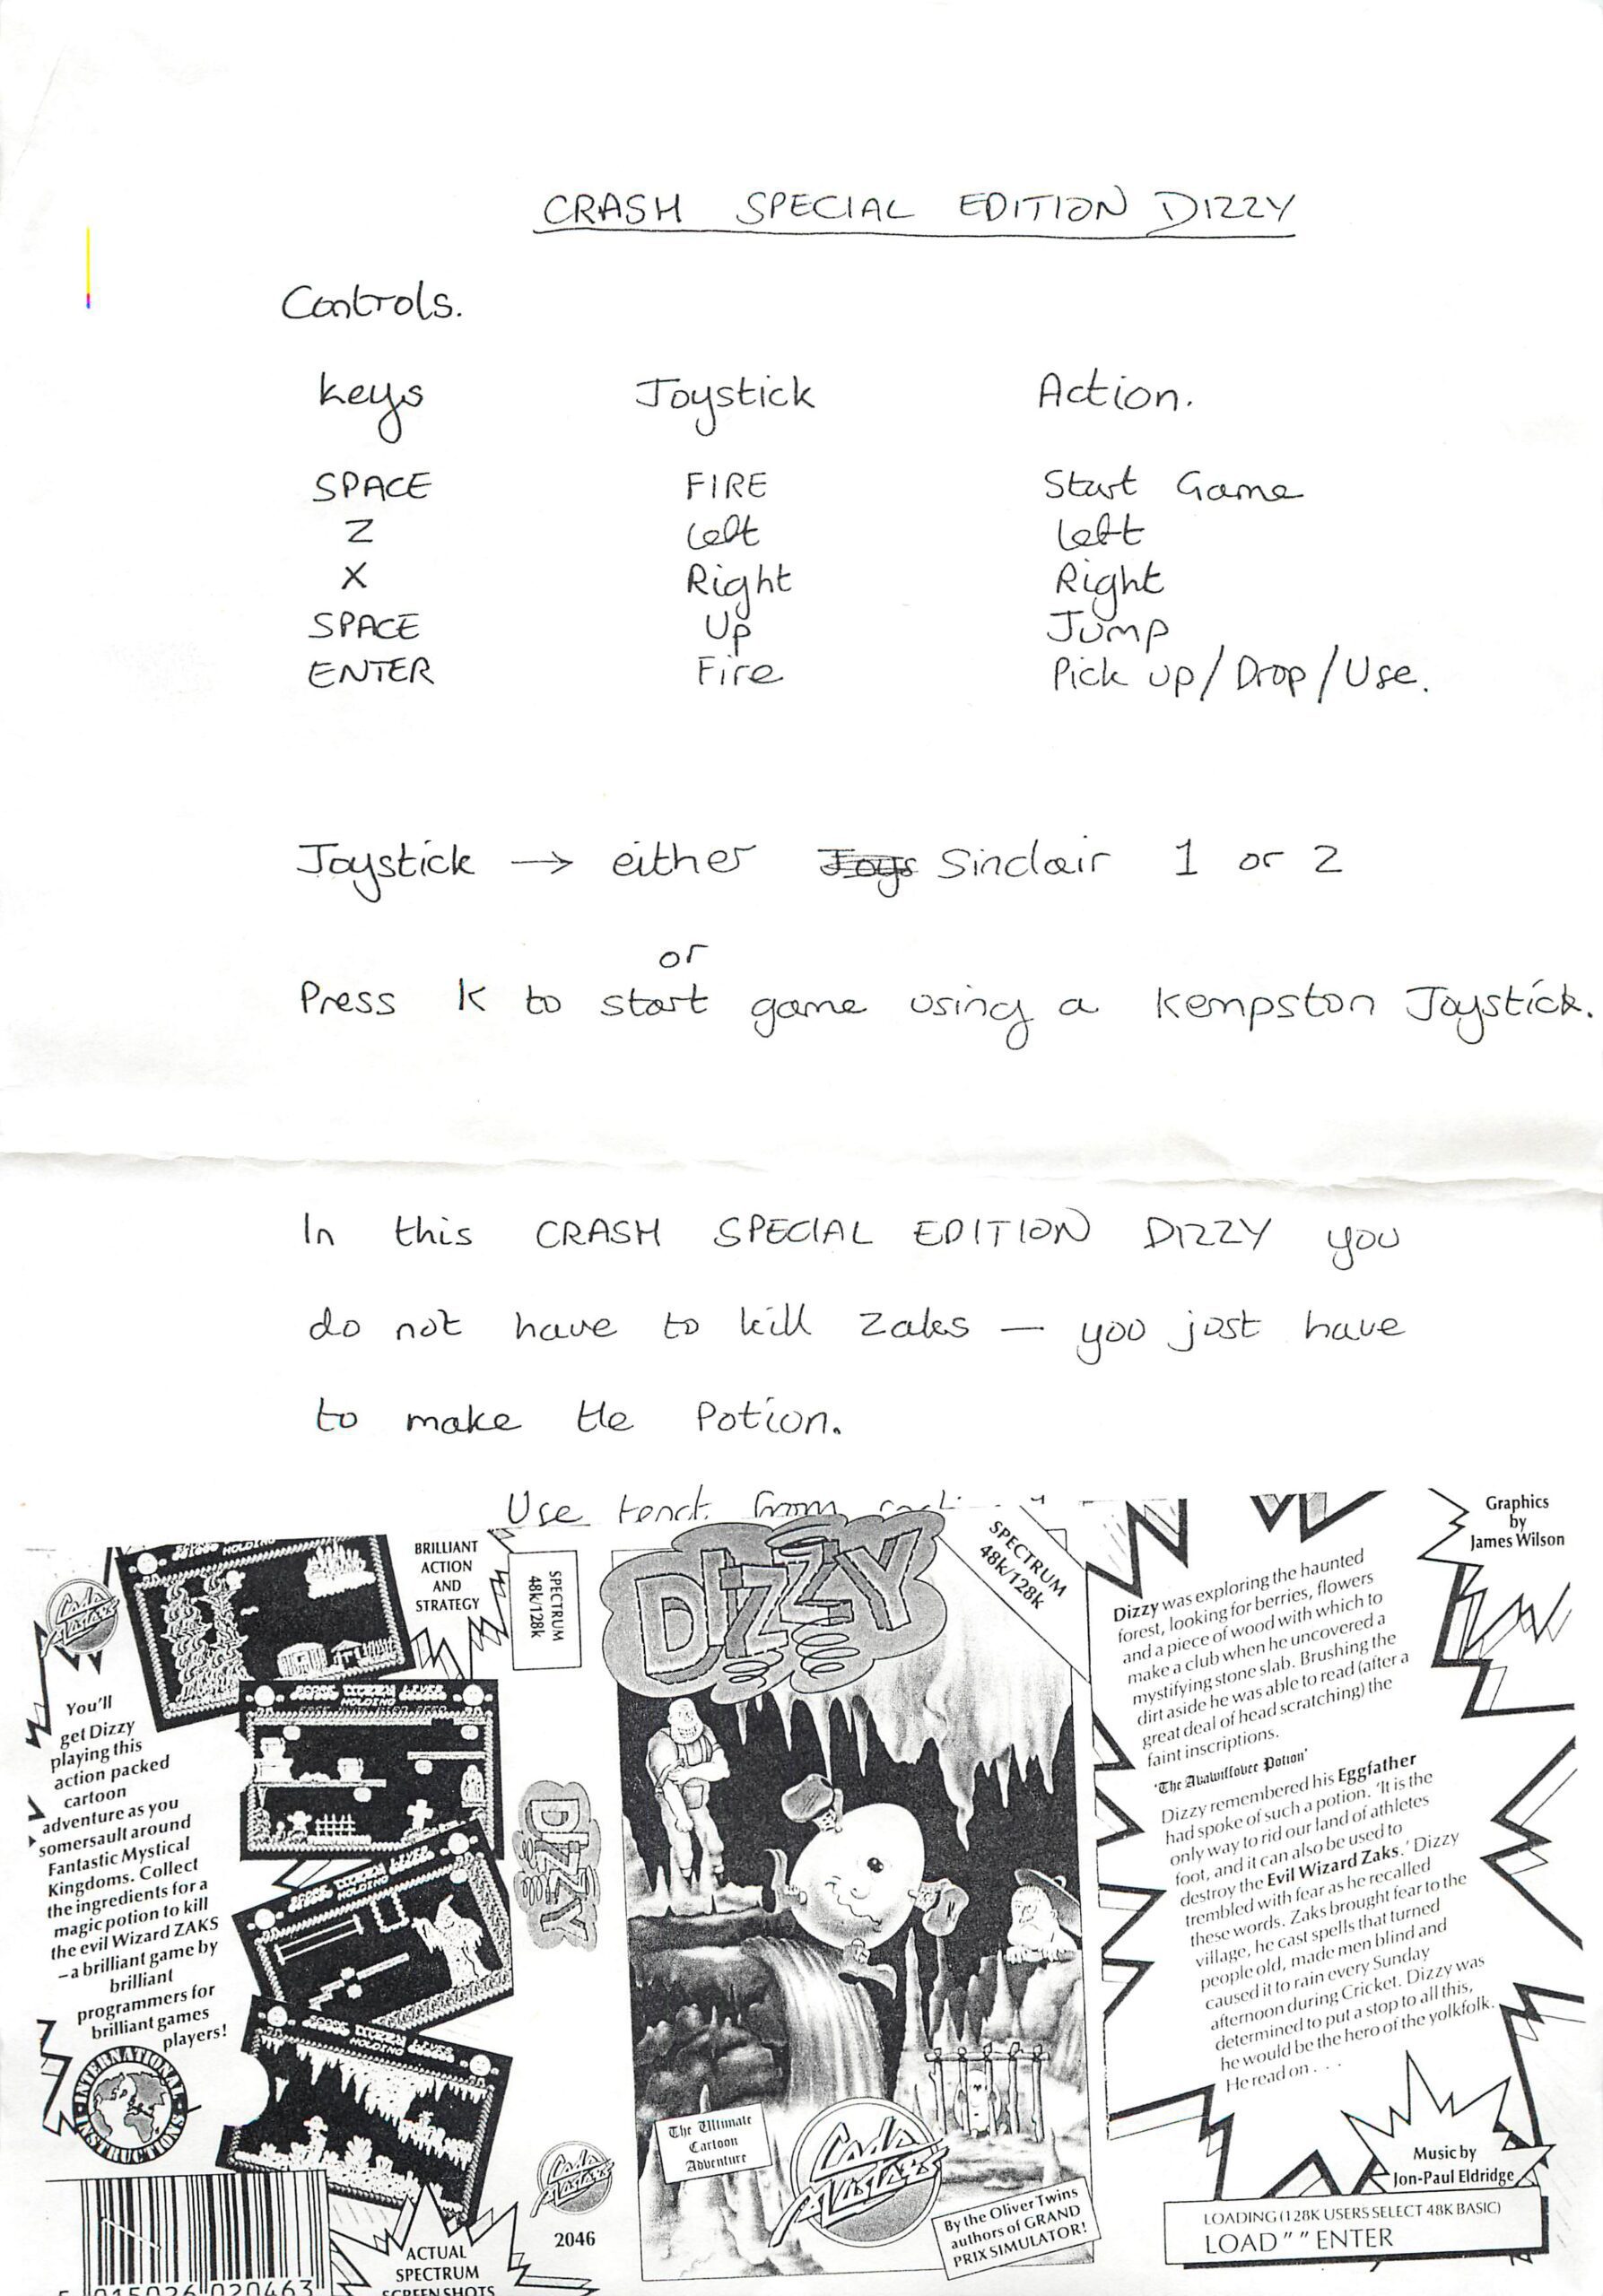 CRASH SPECIAL EDITION DIZZY
Controls.
Keys Joystick Action.
SPACE FIRE Start Game
Z Left Left
X Right Right
SPACE Up Jump
ENTER Fire Pick up/Drop/Use.
Joystick → either Joys Sinclair 1 or 2
or
Press K to start game using a Kempston Joystick.
In this CRASH SPECIAL EDITION DIZZY you
do not have to kill Zaks — you just have
to make the Potion.
Use from
Code
Masters
You'll
get Dizzy
playing this
action packed
cartoon
adventure as you
somersault around
Fantastic Mystical
Kingdoms. Collect
the ingredients for a
magic potion to kill
the evil Wizard ZAKS
–a brilliant game by
brilliant
programmers for
brilliant games
players!
INTERNATIONAL
INSTRUCTIONS
5 015026 020463
BRILLIANT
ACTION
AND
STRATEGY
HOLDING
HOLDING
HOLDING
HOLDING
ACTUAL
SPECTRUM
SCREEN SHOTS
SPECTRUM
48k/128k
DIZZY
Code
Masters
2046
DIZZY
SPECTRUM
48k/128k
The Ultimate
Cartoon
Adventure
Code
Masters
By the Oliver Twins
authors of GRAND
PRIX SIMULATOR!
Graphics
by
James Wilson
Dizzy was exploring the haunted
forest, looking for berries, flowers
and a piece of wood with which to
make a club when he uncovered a
mystifying stone slab. Brushing the
dirt aside he was able to read (after a
great deal of head scratching) the
faint inscriptions.
'The Avawiffovee Potion'
Dizzy remembered his Eggfather
had spoke of such a potion. 'It is the
only way to rid our land of athletes
foot, and it can also be used to
destroy the Evil Wizard Zaks.' Dizzy
trembled with fear as he recalled
these words. Zaks brought fear to the
village, he cast spells that turned
people old, made men blind and
caused it to rain every Sunday
afternoon during Cricket. Dizzy was
determined to put a stop to all this,
he would be the hero of the yolkfolk.
He read on . . .
Music by
Jon-Paul Eldridge
LOADING (128K USERS SELECT 48K BASIC)
LOAD " " ENTER